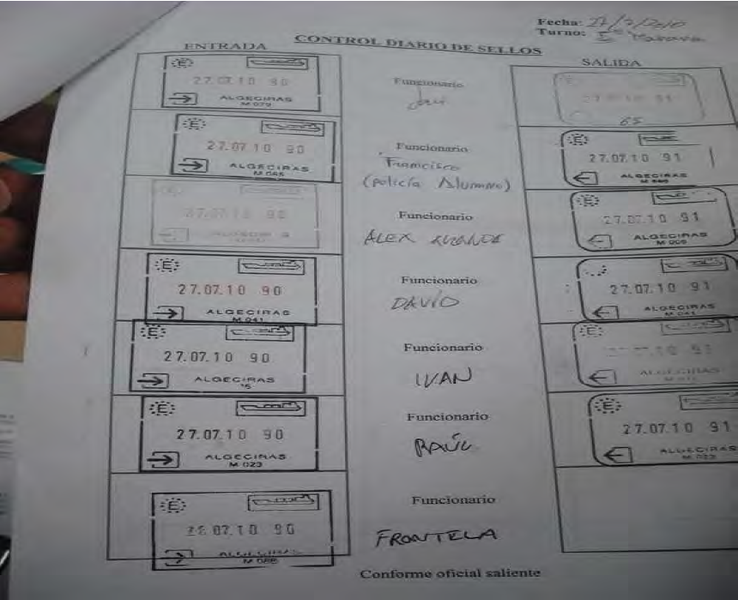 Fecha: 27/7/2010
Turno: Mañana
CONTROL DIARIO DE SELLOS
ENTRADA
SALIDA
E
27.07.10 90
ALGECIRAS
M 079
Funcionario
Javi
27.07.10 91
65
E
27.07.10 90
ALGECIRAS
Funcionario
Francisco
(policía Alumno)
E
27.07.10 91
ALGECIRAS
27.07.10 90
Funcionario
ALEX
E
27.07.10 91
ALGECIRAS
M 009
E
27.07.10 90
ALGECIRAS
M 041
Funcionario
DAVID
27.07.10 91
ALGECIRAS
M 041
E
27.07.10 90
ALGECIRAS
Funcionario
IVAN
E
91
ALGECIRAS
E
27.07.10 90
ALGECIRAS
M 023
Funcionario
RAÚL
E
27.07.10 91
ALGECIRAS
M 023
E
07.10 90
ALGECIRAS
Funcionario
FRONTELA
Conforme oficial saliente